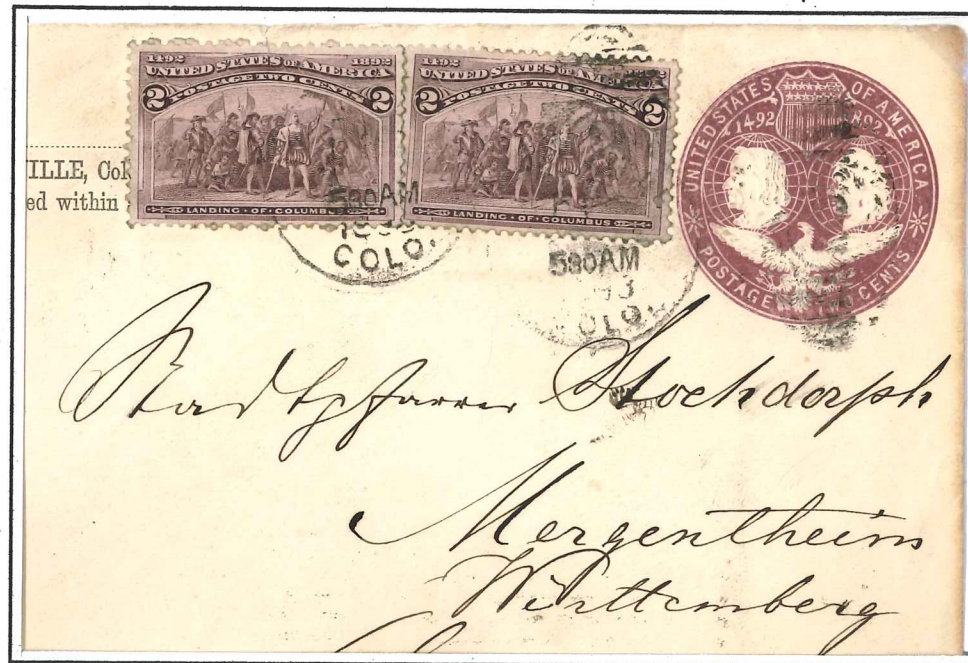 1492 1892
UNITED STATES OF AMERICA
POSTAGE TWO CENTS
2 2
LANDING · OF · COLUMBUS
1492
UNITED STATES OF AMERICA
POSTAGE TWO CENTS
2 2
LANDING · OF · COLUMBUS
UNITED STATES OF AMERICA
1492 1892
POSTAGE CENTS
ILLE, Col
ed within
530AM
COLO.
530AM
93
OLO.
Stadtpfarrer Stochdorph
Mergentheim
Württemberg